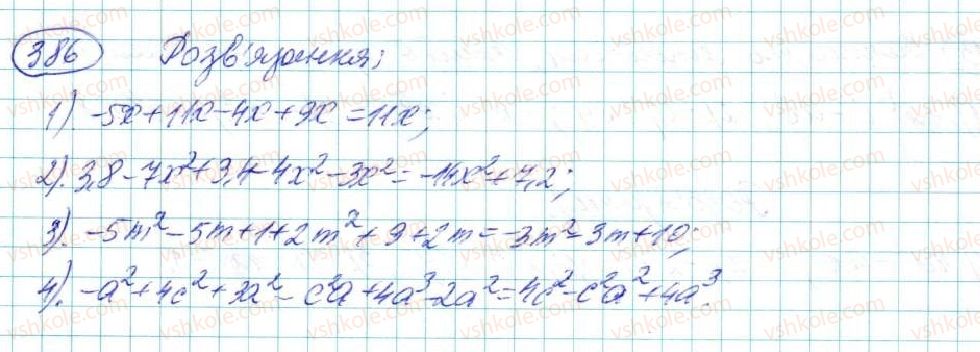 386 Розв'язання:
1). -5x+11x-4x+9x=11x;
2). 3,8-7x²+3,4-4x²-3x²=-14x²+7,2;
3). -5m²-5m+1+2m²+9+2m=-3m²-3m+10;
4). -a²+4c²+3a²-c²a+4a³-2a²=4c²-c²a²+4a³.